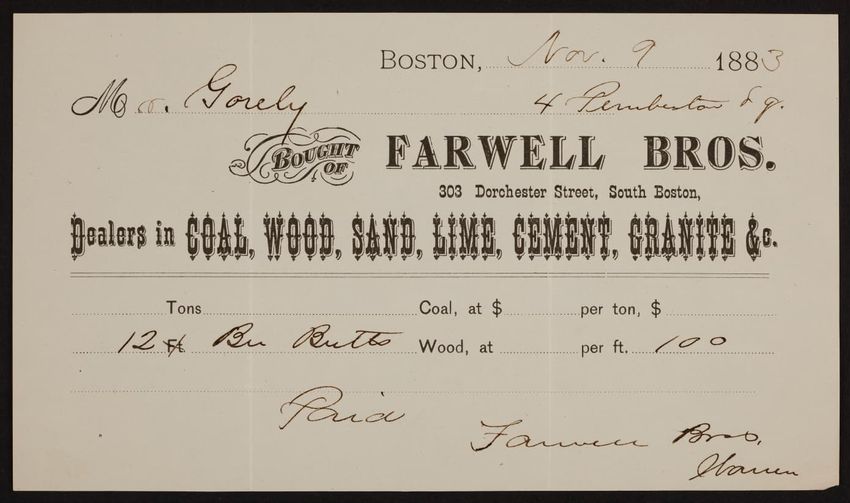 Boston, Nov. 9 1883
Mr. Gorely 4 Pemberton Sq.
Bought of FARWELL BROS.
303 Dorchester Street, South Boston,
Dealers in COAL, WOOD, SAND, LIME, CEMENT, GRANITE &c.
Tons Coal, at $ per ton, $
12 Ft Bu Butts Wood, at per ft. 100
Paid
Farwell Bros.